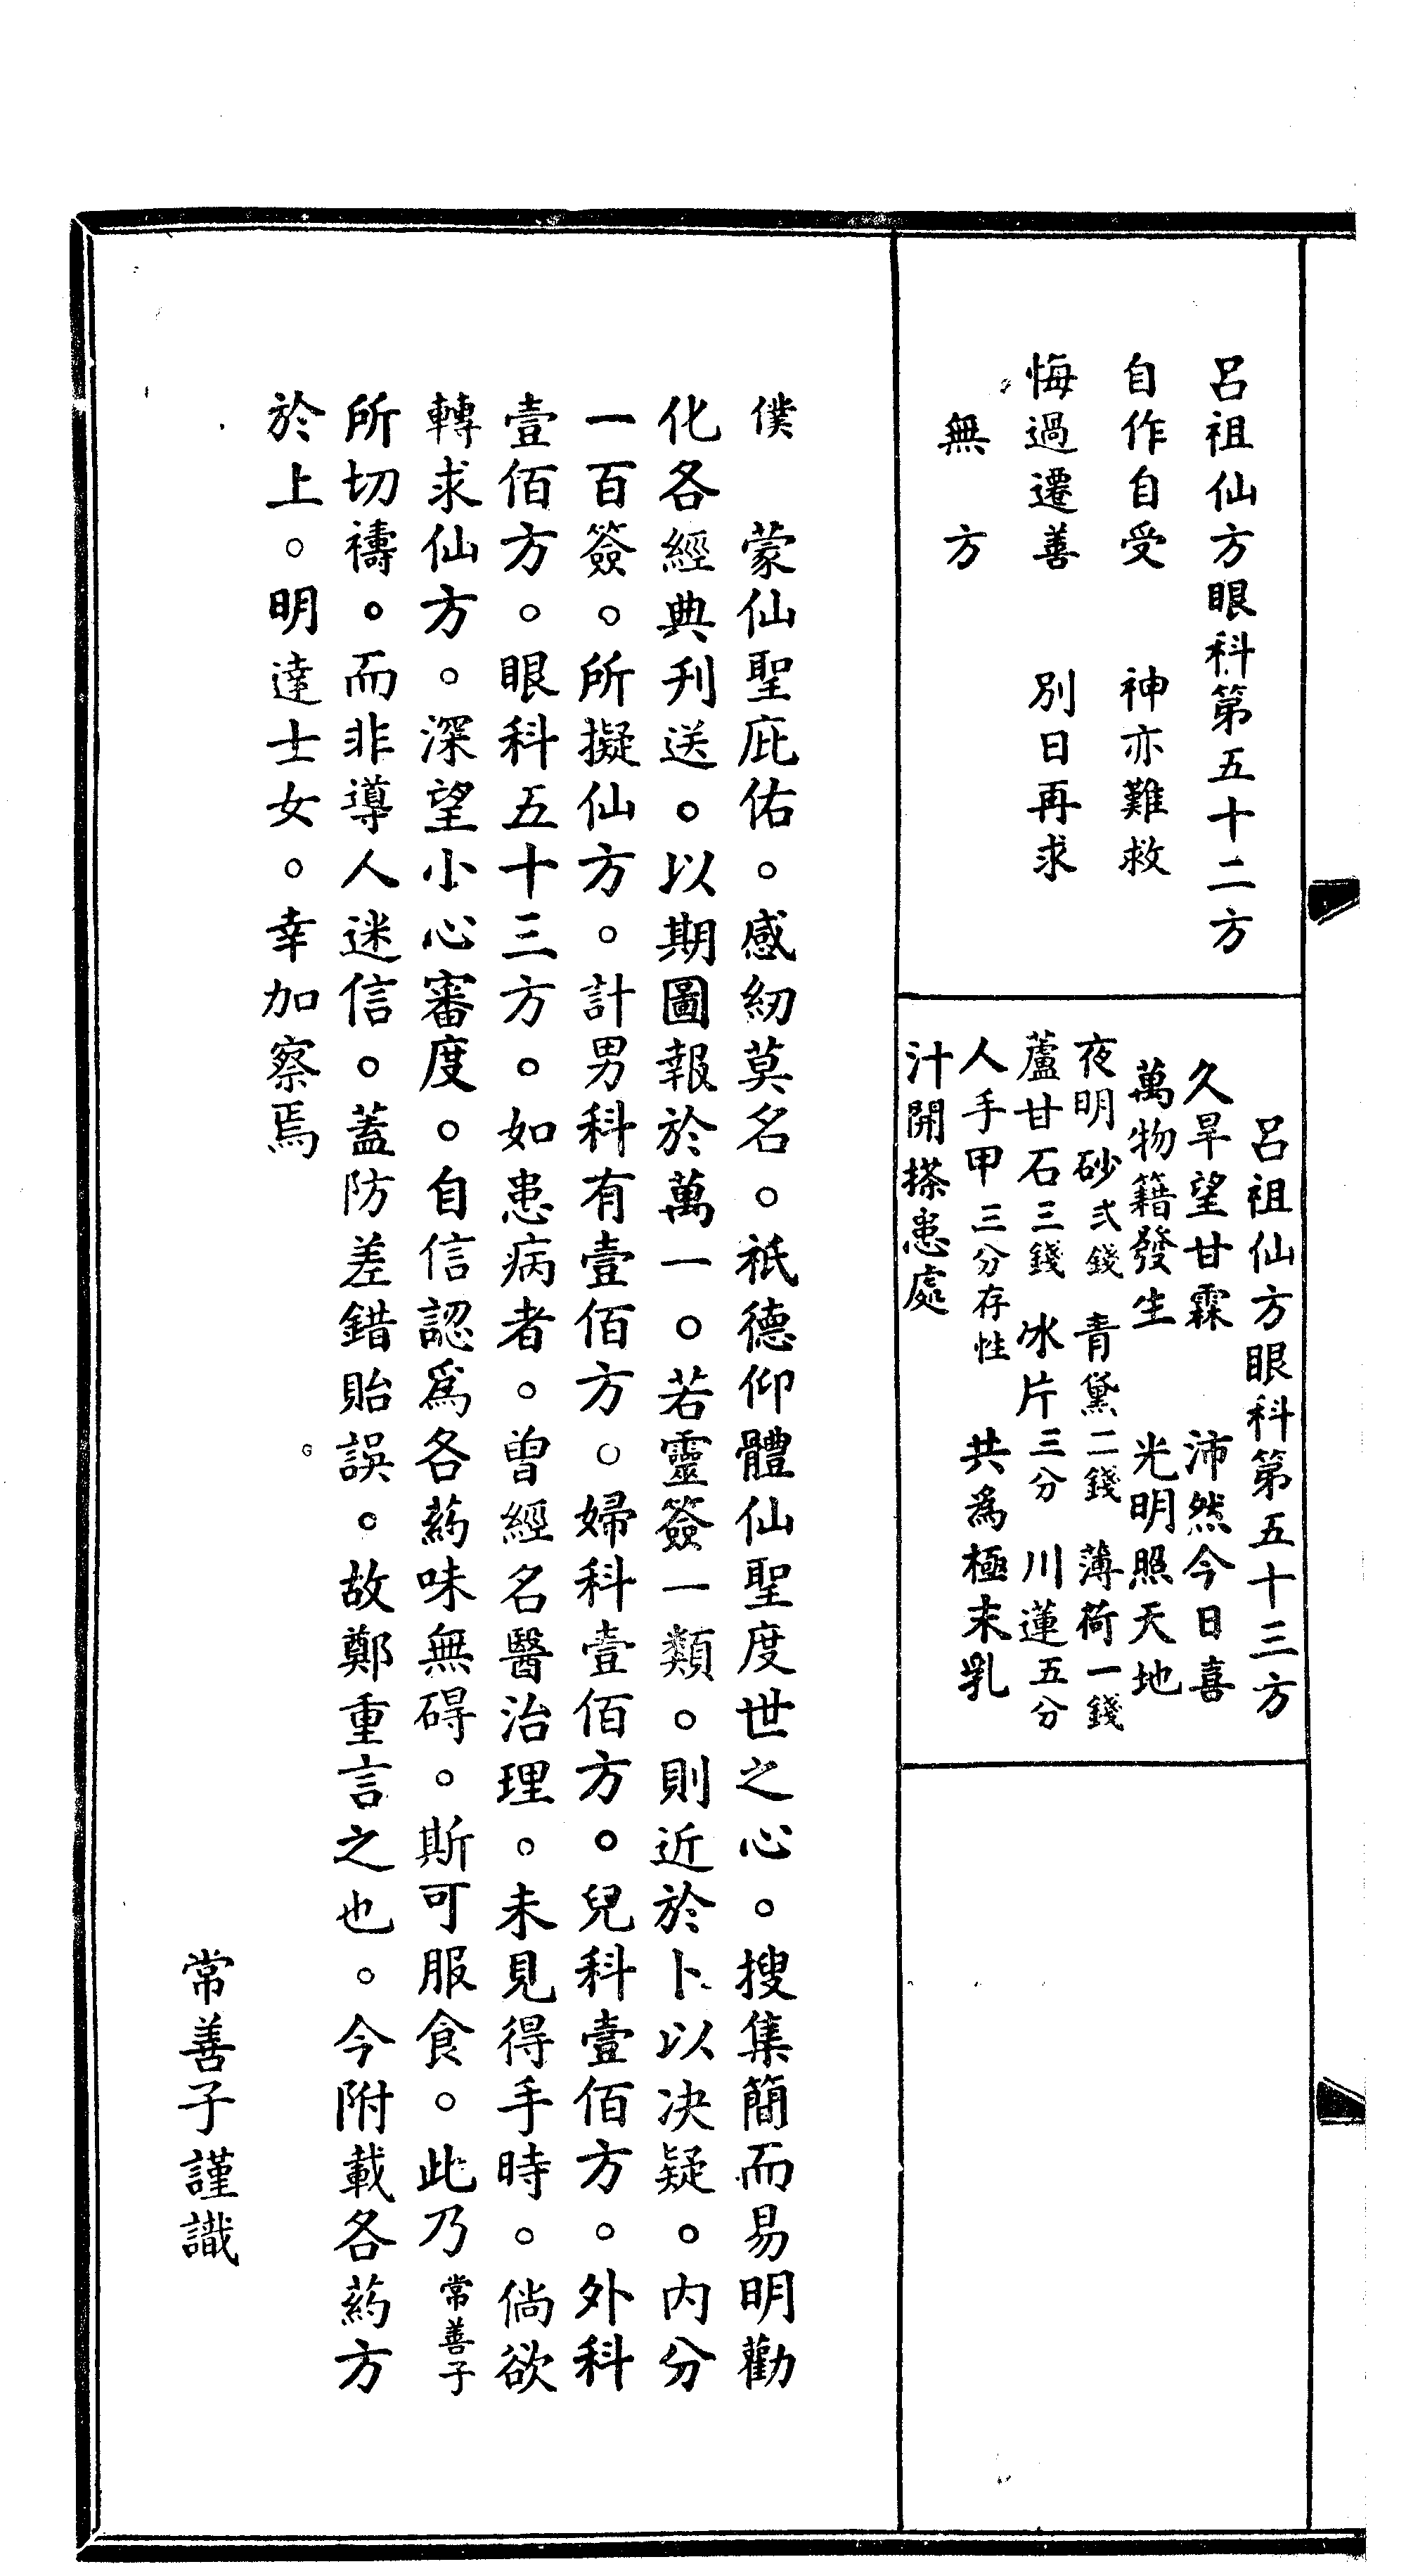 呂祖仙方眼科第五十二方
自作自受　神亦難救
悔過遷善　別日再求
無方
呂祖仙方眼科第五十三方
久旱望甘霖　沛然今日喜
萬物籍發生　光明照天地
夜明砂弍錢　青黛二錢　薄荷一錢
蘆甘石三錢　冰片三分　川蓮五分
人手甲三分存性　共為極末乳
汁開搽患處
僕　蒙仙聖庇佑。感紉莫名。祇德仰體仙聖度世之心。搜集簡而易明勸
化各經典刋送。以期圖報於萬一。若靈簽一類。則近於卜以决疑。內分
一百簽。所擬仙方。計男科有壹佰方。婦科壹佰方。兒科壹佰方。外科
壹佰方。眼科五十三方。如患病者。曾經名醫治理。未見得手時。倘欲
轉求仙方。深望小心審度。自信認爲各葯味無碍。斯可服食。此乃常善子
所切禱。而非導人迷信。蓋防差錯貽誤。故鄭重言之也。今附載各葯方
於上。明達士女。幸加察焉。
常善子謹識